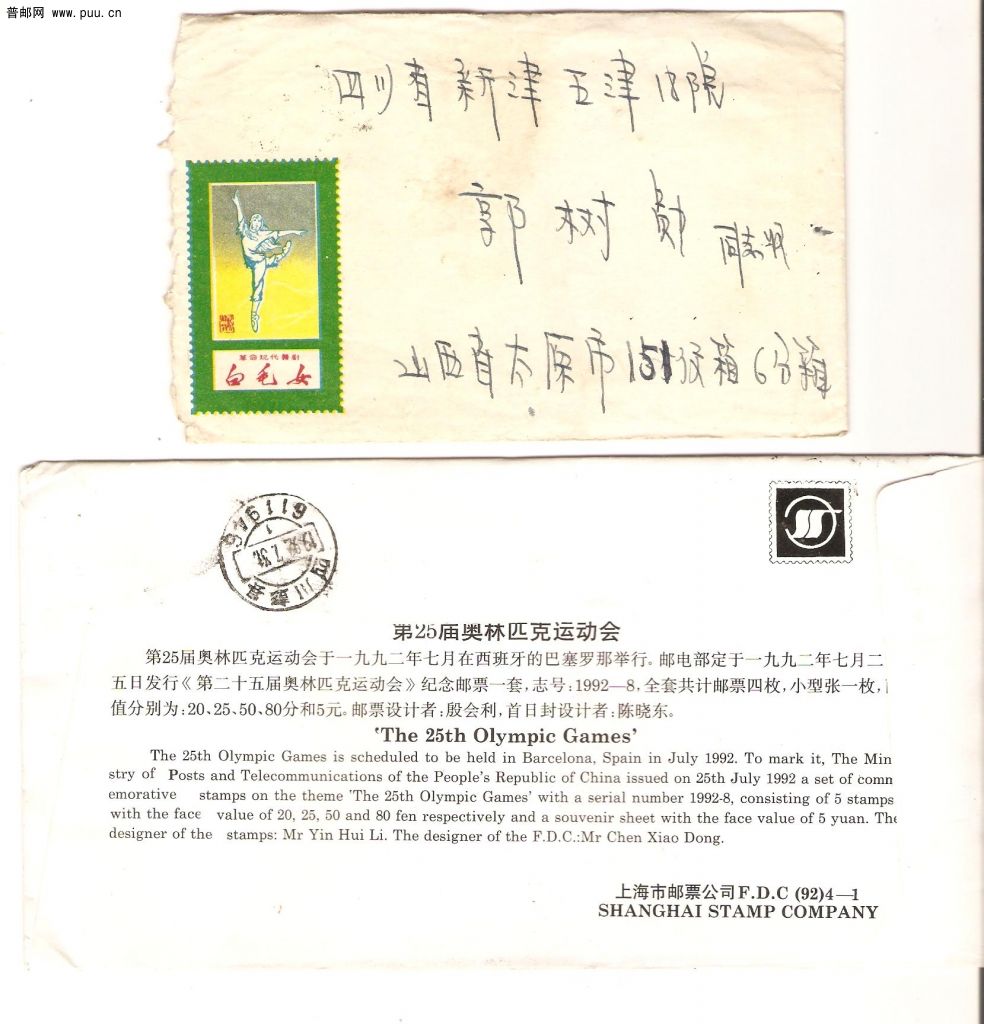 普邮网 www.puu.cn
四川省新津五津
郭树勋 同志收
革命现代舞剧
白毛女
山西省太原市151信箱6分箱
611946
1
1992.7.
四川
第25届奥林匹克运动会
第25届奥林匹克运动会于一九九二年七月在西班牙的巴塞罗那举行。邮电部定于一九九二年七月二
五日发行《第二十五届奥林匹克运动会》纪念邮票一套，志号：1992—8，全套共计邮票四枚，小型张一枚，
值分别为：20、25、50、80分和5元。邮票设计者：殷会利，首日封设计者：陈晓东。
'The 25th Olympic Games'
The 25th Olympic Games is scheduled to be held in Barcelona, Spain in July 1992. To mark it, The Min
stry of Posts and Telecommunications of the People's Republic of China issued on 25th July 1992 a set of comn
emorative stamps on the theme 'The 25th Olympic Games' with a serial number 1992-8, consisting of 5 stamps
with the face value of 20, 25, 50 and 80 fen respectively and a souvenir sheet with the face value of 5 yuan. The
designer of the stamps: Mr Yin Hui Li. The designer of the F.D.C.:Mr Chen Xiao Dong.
上海市邮票公司F.D.C (92)4—1
SHANGHAI STAMP COMPANY